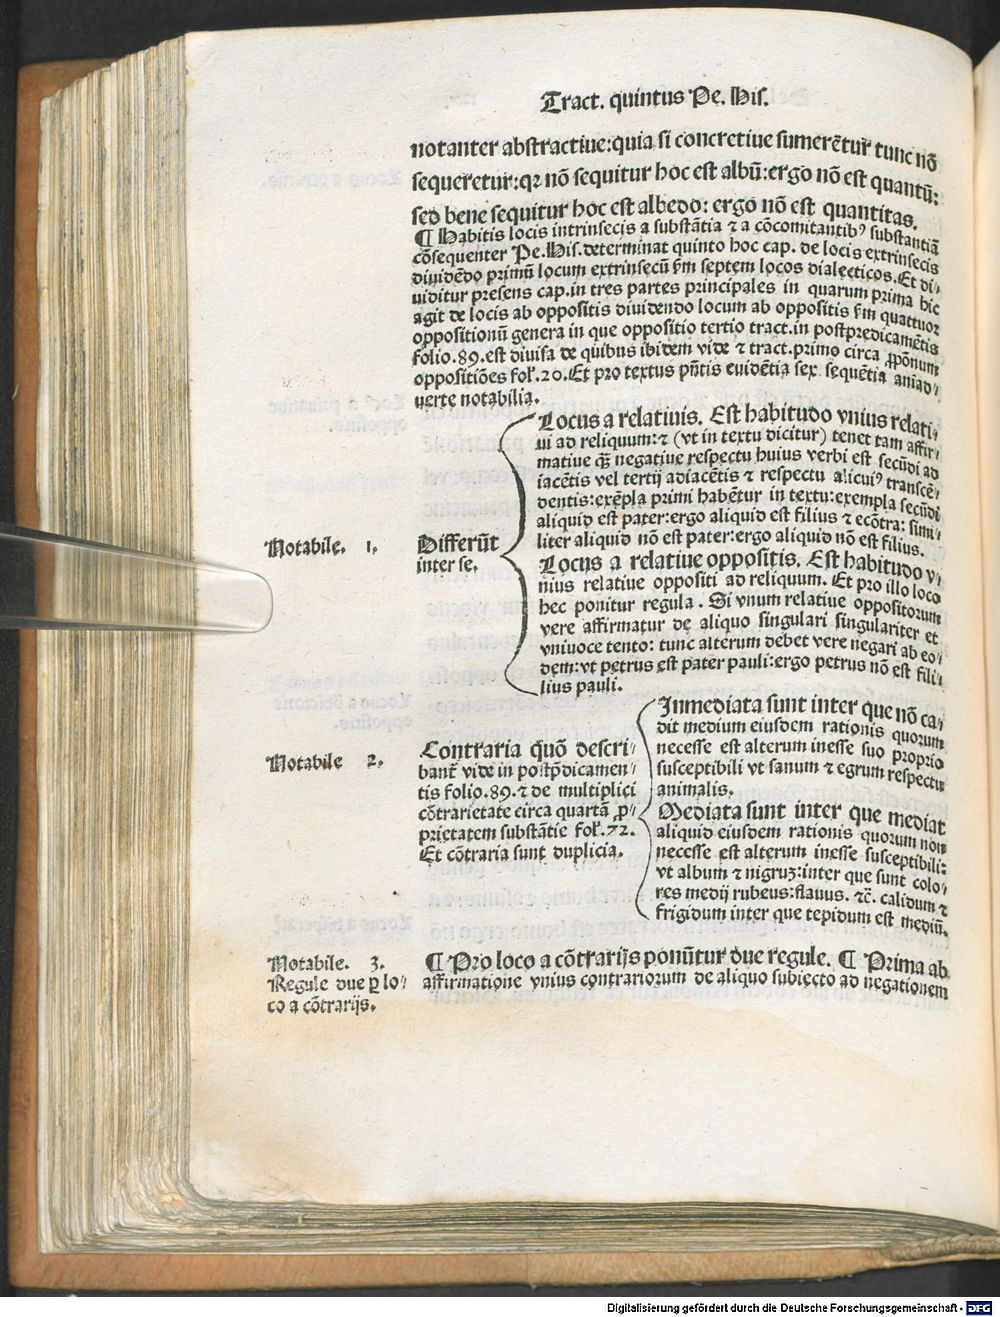 Tract. quintus Pe. His.
notanter abstractiue: quia si concretiue sumerẽtur tunc nõ
sequeretur: qꝛ nõ sequitur hoc est albũ: ergo nõ est quantũ:
sed bene sequitur hoc est albedo: ergo nõ est quantitas.
¶ Habitis locis intrinsecis a substãtia ⁊ a cõcomitantibꝰ substantiã
cõsequenter Pe. His. determinat quinto hoc cap. de locis extrinsecis
diuidẽdo primũ locum extrinsecũ ẜm septem locos dialecticos. Et di⸗
uiditur presens cap. in tres partes principales in quarum prima hic
agit de locis ab oppositis diuidendo locum ab oppositis ẜm quattuor
oppositionũ genera in que oppositio tertio tract. in postpredicamẽtis
folio. 89. est diuisa de quibus ibidem vide ⁊ tract. primo circa ꝓpõnum
oppositiões foł. 20. Et pro textus pñtis euidẽtia sex sequẽtia aniad⸗
uerte notabilia.
Notabile. 1.
Differũt
inter se.
Locus a relatiuis. Est habitudo vnius relati⸗
ui ad reliquum: ⁊ (vt in textu dicitur) tenet tam affir⸗
matiue q̃ȝ negatiue respectu huius verbi est secũdi ad
iacẽtis vel tertij adiacẽtis ⁊ respectu alicuiꝰ transcẽ⸗
dentis: exẽpla primi habẽtur in textu: exempla secũdi
aliquid est pater: ergo aliquid est filius ⁊ ecõtra: simi⸗
liter aliquid nõ est pater: ergo aliquid nõ est filius.
Locus a relatiue oppositis. Est habitudo v⸗
nius relatiue oppositi ad reliquum. Et pro illo loco
hec ponitur regula. Si vnum relatiue oppositorum
vere affirmatur de aliquo singulari singulariter et
vniuoce tento: tunc alterum debet vere negari ab eo⸗
dem: vt petrus est pater pauli: ergo petrus nõ est fili⸗
lius pauli.
Notabile 2.
Contraria quõ descri⸗
bant̃ vide in postp̃dicamen⸗
tis folio. 89. ⁊ de multiplici
cõtrarietate circa quartã ꝓ⸗
prietatem substãtie foł. 72.
Et cõtraria sunt duplicia.
Inmediata sunt inter que nõ ca⸗
dit medium eiusdem rationis quorum
necesse est alterum inesse suo proprio
susceptibili vt sanum ⁊ egrum respectu
animalis.
Mediata sunt inter que mediat
aliquid eiusdem rationis quorum non
necesse est alterum inesse susceptibili:
vt album ⁊ nigruȝ: inter que sunt colo⸗
res medij rubeus: flauus. ⁊c̃. calidum ⁊
frigidum inter que tepidum est mediũ.
Notabile. 3.
Regule due ꝑ lo⸗
co a cõtrarijs.
¶ Pro loco a cõtrarijs ponũtur due regule. ¶ Prima ab
affirmatione vnius contrariorum de aliquo subiecto ad negationem
Digitalisierung gefördert durch die Deutsche Forschungsgemeinschaft - DFG